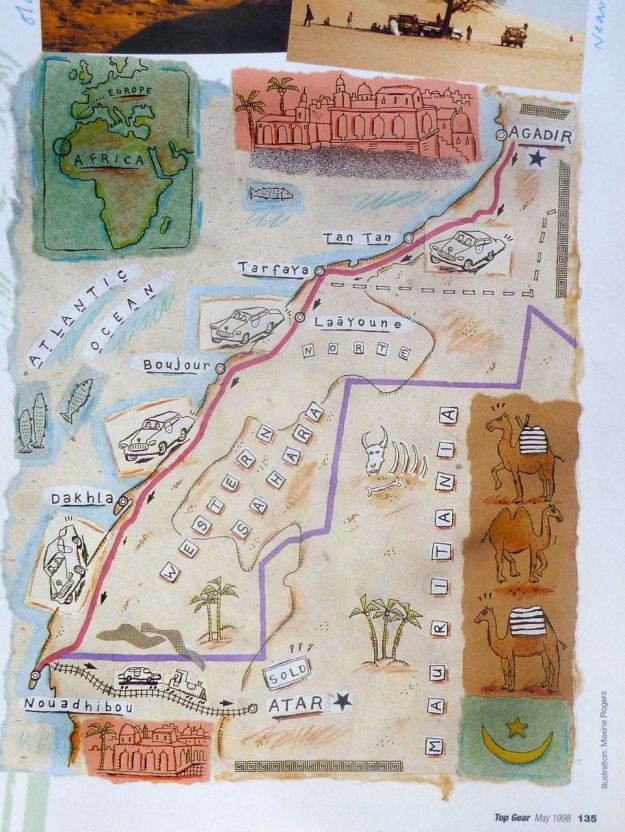 EUROPE
AFRICA
AGADIR
Tan Tan
Tarfaya
ATLANTIC
OCEAN
Laâyoune
NORTE
Boujour
WESTERN
SAHARA
MAURITANIA
Dakhla
SOLD
Nouadhibou
ATAR
Illustration: Maxine Rogers
Top Gear May 1998 135